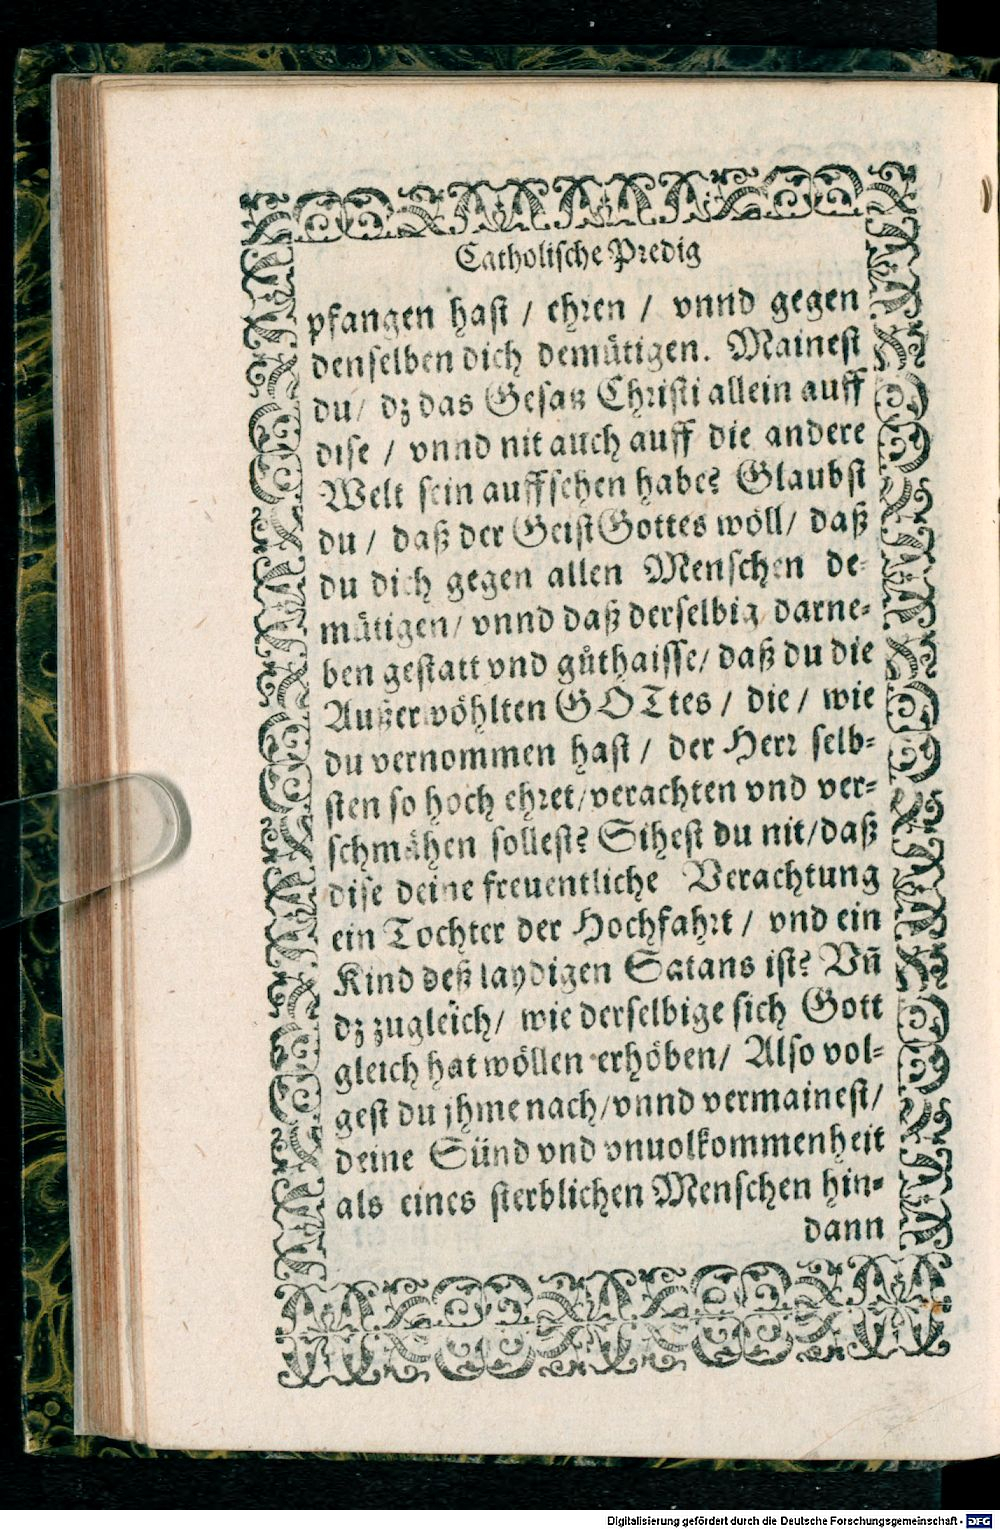 Catholische Predig
pfangen hast / ehren / vnnd gegen
denselben dich demütigen. Mainest
du / dz das Gesatz Christi allein auff
dise / vnnd nit auch auff die andere
Welt sein auffsehen habe? Glaubst
du / daß der Geist Gottes wöll / daß
du dich gegen allen Menschen de-
mütigen / vnnd daß derselbig darne-
ben gestatt vnd gůthaisse / daß du die
Außerwöhlten GOTtes / die / wie
du vernommen hast / der Herr selb-
sten so hoch ehret / verachten vnd ver-
schmähen sollest? Sihest du nit / daß
dise deine freuentliche Verachtung
ein Tochter der Hochfahrt / vnd ein
Kind deß laydigen Satans ist? Vñ
dz zugleich / wie derselbige sich Gott
gleich hat wöllen erhöben / Also vol-
gest du jhme nach / vnnd vermainest /
deine Sünd vnd vnuolkommenheit
als eines sterblichen Menschen hin-
dann
Digitalisierung gefördert durch die Deutsche Forschungsgemeinschaft - DFG